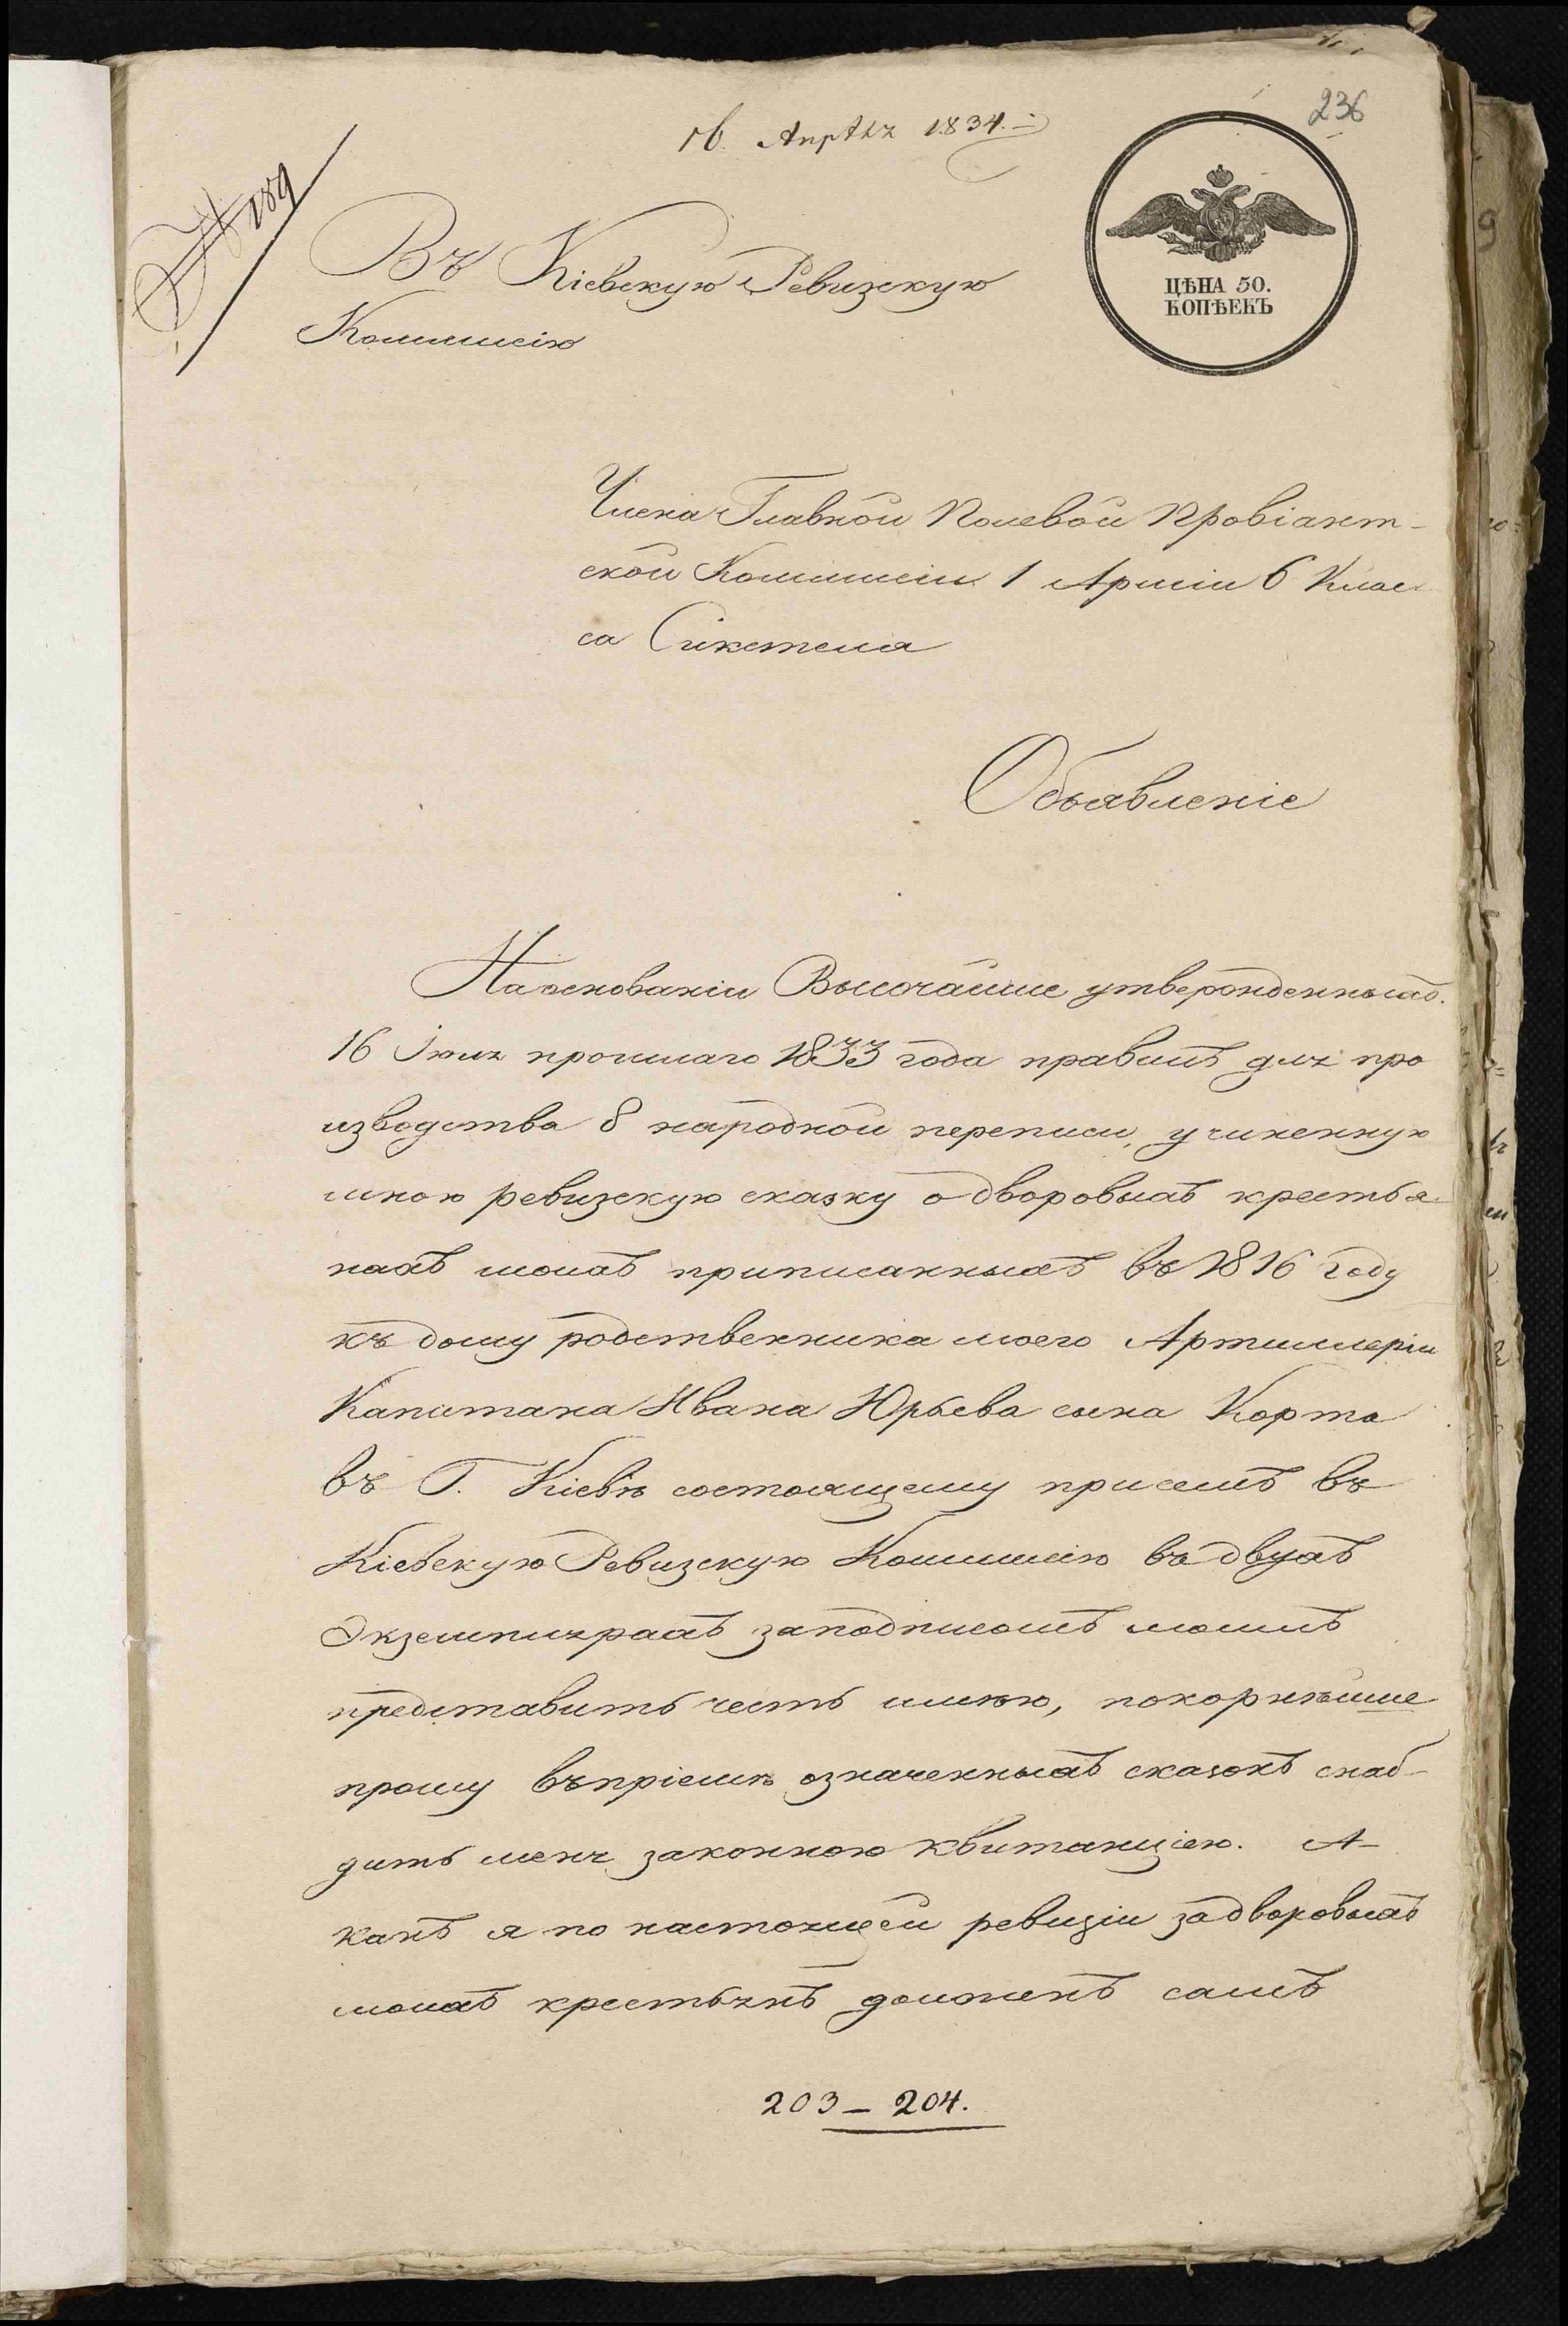 236
16. Апрѣля 1834.
№ 189
Въ Кіевскую Ревизскую
Коммисію
ЦѢНА 50.
КОПѢЕКЪ
Члена Главной Полевой Провіант-
ской Коммисіи 1 Арміи 6 Клас-
са Сикстеля
Объявленіе
На основаніи Высочайше утвержденныхъ
16 Іюля прошлаго 1833 года правилъ для про
изводства 8 народной переписи, учиненную
мною ревизскую сказку о дворовыхъ крестья
нахъ моихъ приписанныхъ въ 1816 году
къ дому родственника моего Артиллеріи
Капитана Ивана Юрьева сына Корта
въ Г. Кіевѣ состоящему присемъ въ
Кіевскую Ревизскую Коммисію въ двухъ
Экземплярахъ заподписомъ моимъ
представить честь имѣю, покорнѣйше
прошу въпріемѣ означенныхъ сказокъ снаб-
дить меня законною квитанціею. А
какъ я по настоящей ревизіи за дворовыхъ
моихъ крестьянъ долженъ самъ
203 - 204.